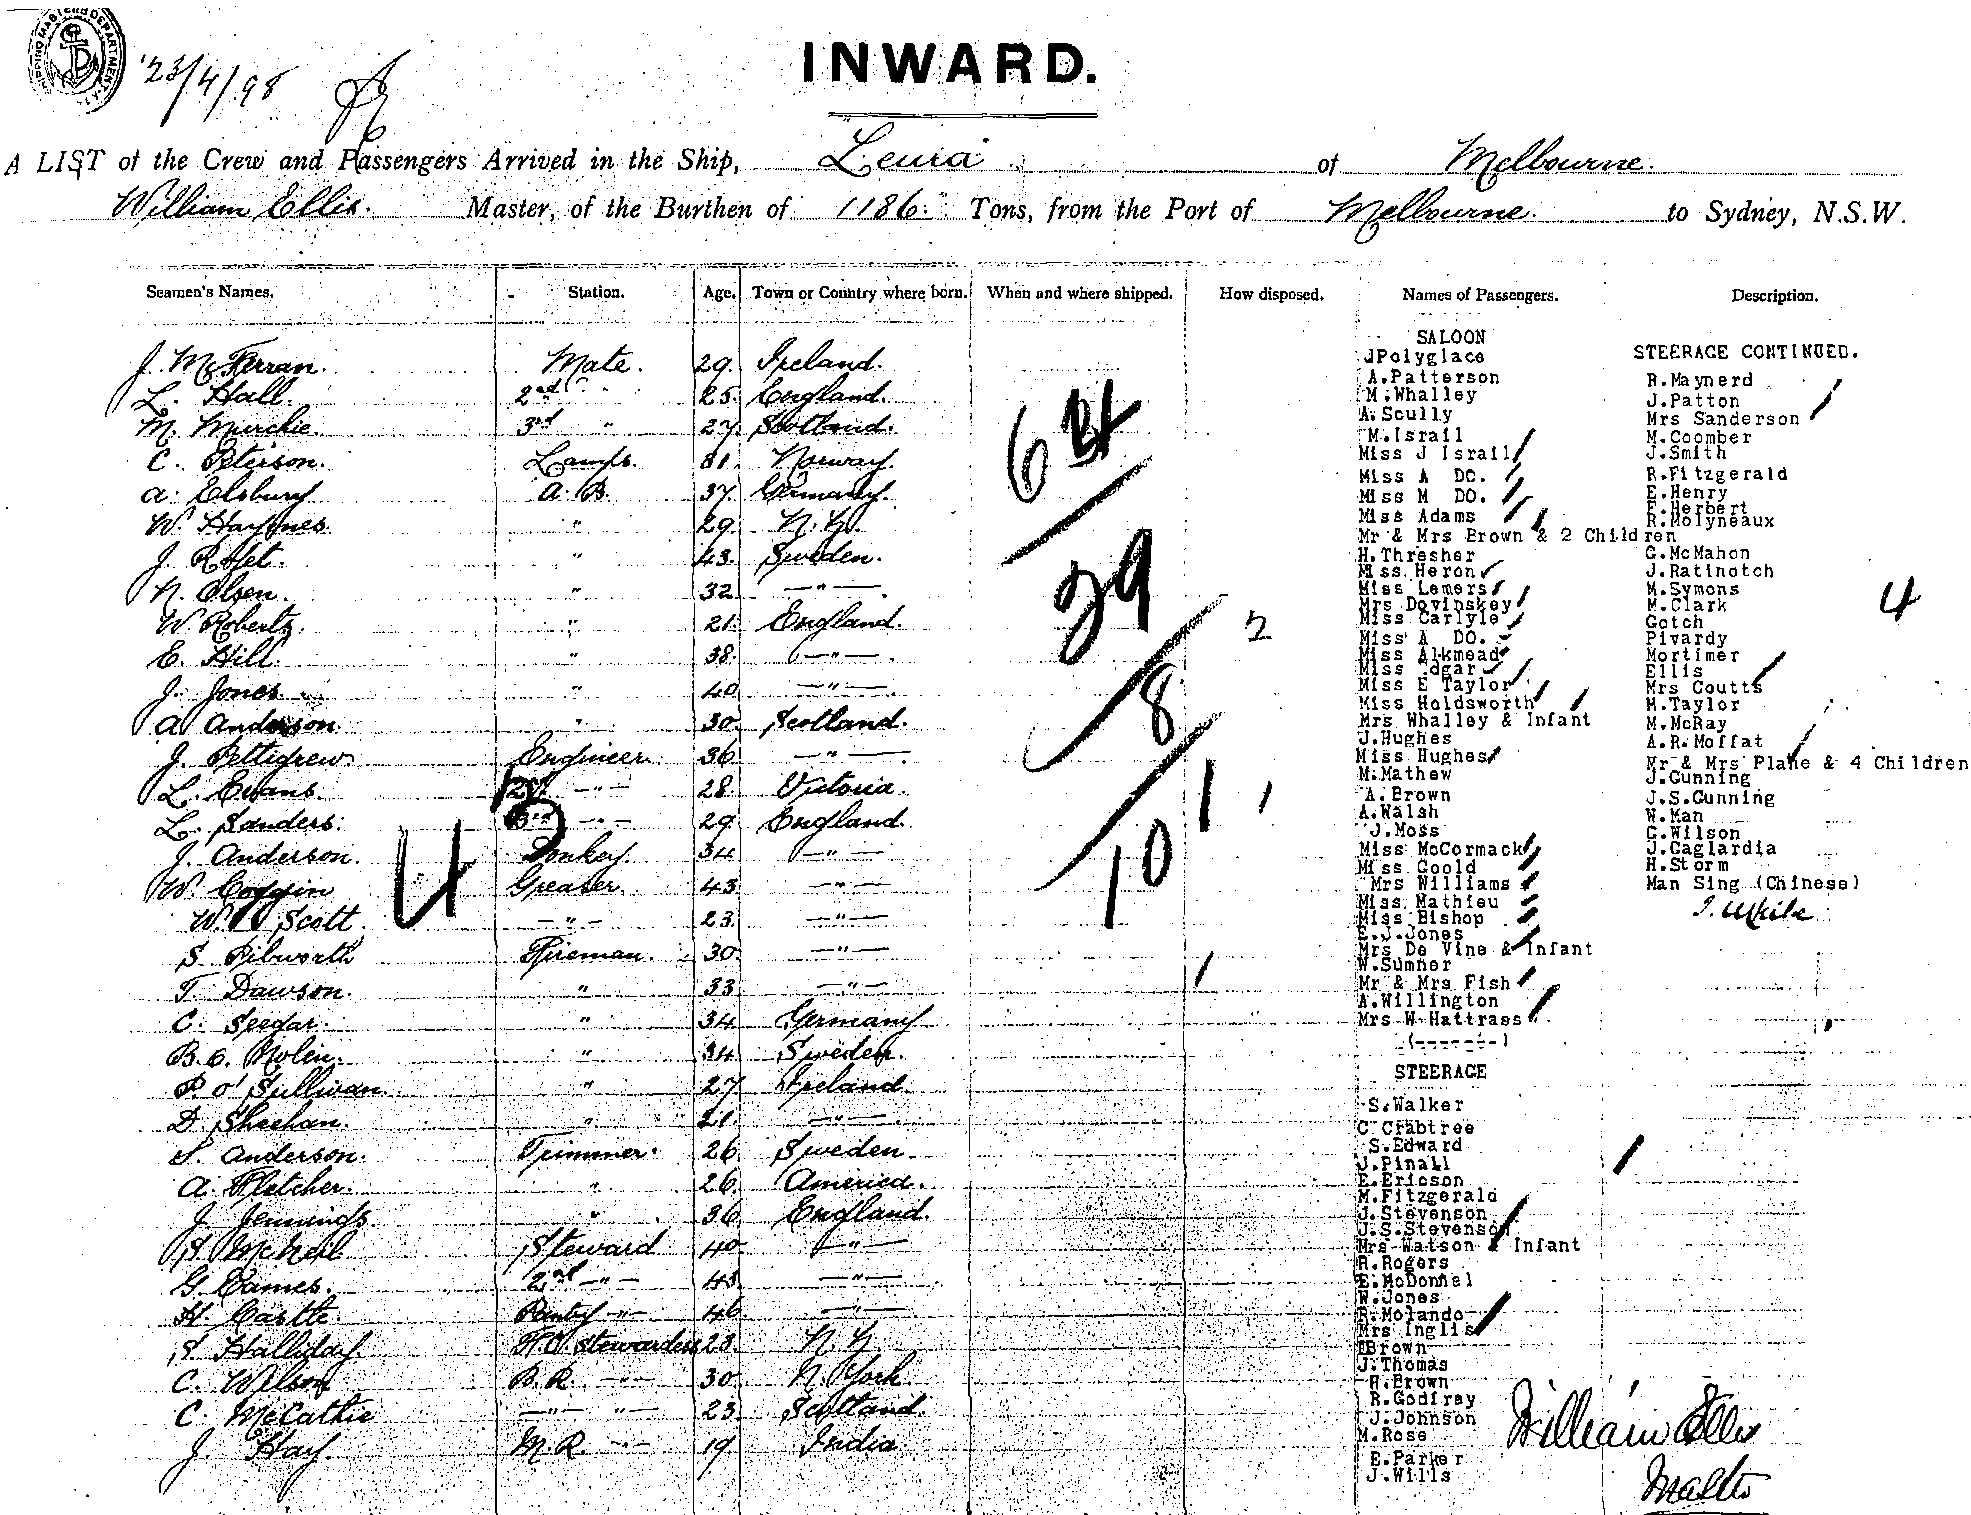 23/4/98
INWARD.
A LIST of the Crew and Passengers Arrived in the Ship, Leura of Melbourne.
William Ellis. Master, of the Burthen of 1186 Tons, from the Port of Melbourne. to Sydney, N.S.W.
Seamen's Names. Station. Age. Town or Country where born. When and where shipped. How disposed. Names of Passengers. Description.
J. McFerran. Mate. 29. Ireland.
L. Hall. 2nd " 25. England.
M. Murchie. 3rd " 27. Scotland.
C. Peterson. Lamps. 31. Norway.
A. Elsbury. A.B. 37. Germany.
W. Haynes. " 29. N.Z.
J. " 43. Sweden.
N. Olsen. " 32. —"—
W. Roberts. " 21. England.
E. Hill. " 38. —"—
J. Jones. " 40. —"—
A. Anderson. " 30. Scotland.
J. Pettigrew. Engineer. 36. —"—
L. Evans. 2nd —"— 28. Victoria.
L. Sanders. 3rd —"— 29. England.
J. Anderson. Donkey. 34. —"—
W. Coggin Greaser. 43. —"—
W. Scott —"— 23. —"—
S. Pibworth Fireman. 30. —"—
T. Dawson. " 33. —"—
C. Seegar. " 34. Germany
B.C. Molin. " 34. Sweden.
P. O'Sullivan. " 27. Ireland.
D. Sheehan. " 21. —"—
S. Anderson. Trimmer. 26. Sweden.
A. Fletcher. " 26. America.
J. Jennings " 36. England.
McNeil Steward 40. —"—
G. Eames. 2nd —"— 43. —"—
H. Castle. Pantry —"— 46. —"—
S. Halliday. Stewardess 23. N.Z.
C. Wilson B.R. —"— 30. N. York
C. McCathie —"— " 23. Scotland.
J. Hay. M.R. —"— 19. India
43
6
29
8
10
1
2
SALOON
JPolyglace
A.Patterson
M.Whalley
A.Scully
M.Israil
Miss J Israil
Miss A DO.
Miss M DO.
Miss Adams
Mr & Mrs Brown & 2 Children
H.Thresher
Miss Heron
Miss Lemers
Mrs Dovinskey
Miss Carlyle
Miss A DO.
Miss Alkmead
Miss Edgar
Miss E Taylor
Miss Holdsworth
Mrs Whalley & Infant
J.Hughes
Miss Hughes
M.Mathew
A.Brown
A.Walsh
J.Moss
Miss McCormack
Miss Goold
Mrs Williams
Miss Mathieu
Miss Bishop
E.J.Jones
Mrs De Vine & Infant
W.Sumner
Mr & Mrs Fish
A.Willington
Mrs W Hattrass
(------)
STEERAGE
S.Walker
C Crabtree
S.Edward
J.Pinall
E.Ericson
M.Fitzgerald
J.Stevenson
J.S.Stevenson
Mrs Watson & Infant
R.Rogers
E.McDonnel
W.Jones
R.Molando
Mrs Inglis
Brown
J.Thomas
H.Brown
R.Godfray
J.Johnson
M.Rose
E.Parker
J.Wills
STEERAGE CONTINUED.
R.Maynerd
J.Patton
Mrs Sanderson
M.Coomber
J.Smith
R.Fitzgerald
E.Henry
F.Herbert
R.Molyneaux
G.McMahon
J.Ratinotch
M.Symons
M.Clark
Gotch
Pivardy
Mortimer
Ellis
Mrs Coutts
M.Taylor
M.McRay
A.R.Moffat
Mr & Mrs Plane & 4 Children
J.Gunning
J.S.Gunning
W.Man
G.Wilson
J.Caglardia
H.Storm
Man Sing (Chinese)
4
William Ellis